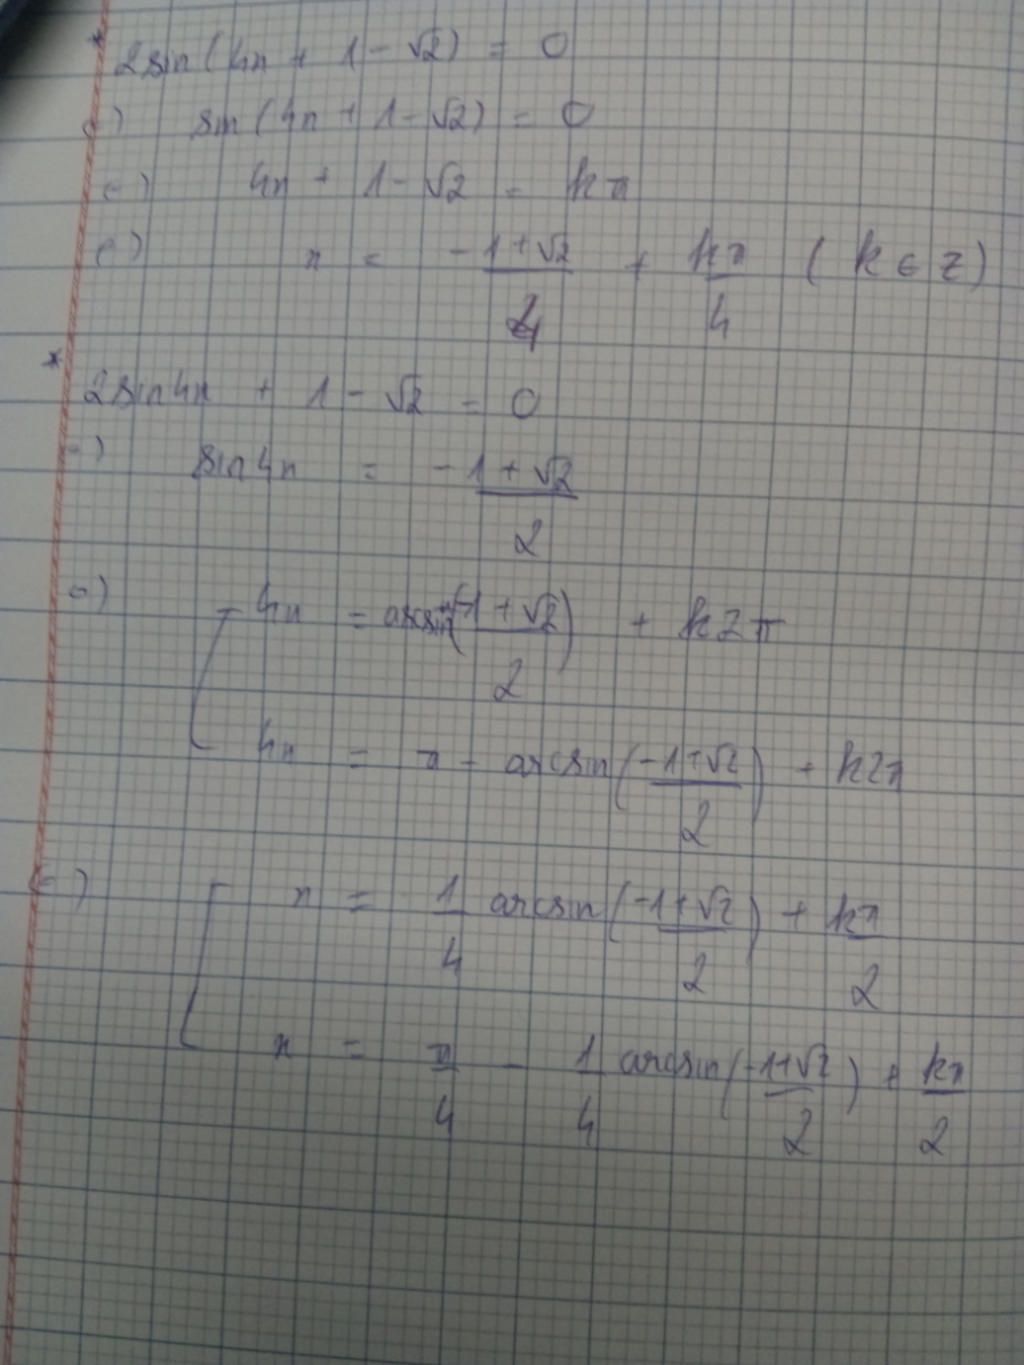 * 2sin(4x + 1 - √2) = 0
<=) sin(4x + 1 - √2) = 0
<=) 4x + 1 - √2 = kπ
<=) x = (-1+√2)/4 + kπ/4 (k ∈ Z)
* 2sin4x + 1 - √2 = 0
<=) sin4x = (-1+√2)/2
<=) [ 4x = arcsin((-1+√2)/2) + k2π
4x = π - arcsin((-1+√2)/2) + k2π
<=) [ x = 1/4 arcsin((-1+√2)/2) + kπ/2
x = π/4 - 1/4 arcsin((-1+√2)/2) + kπ/2